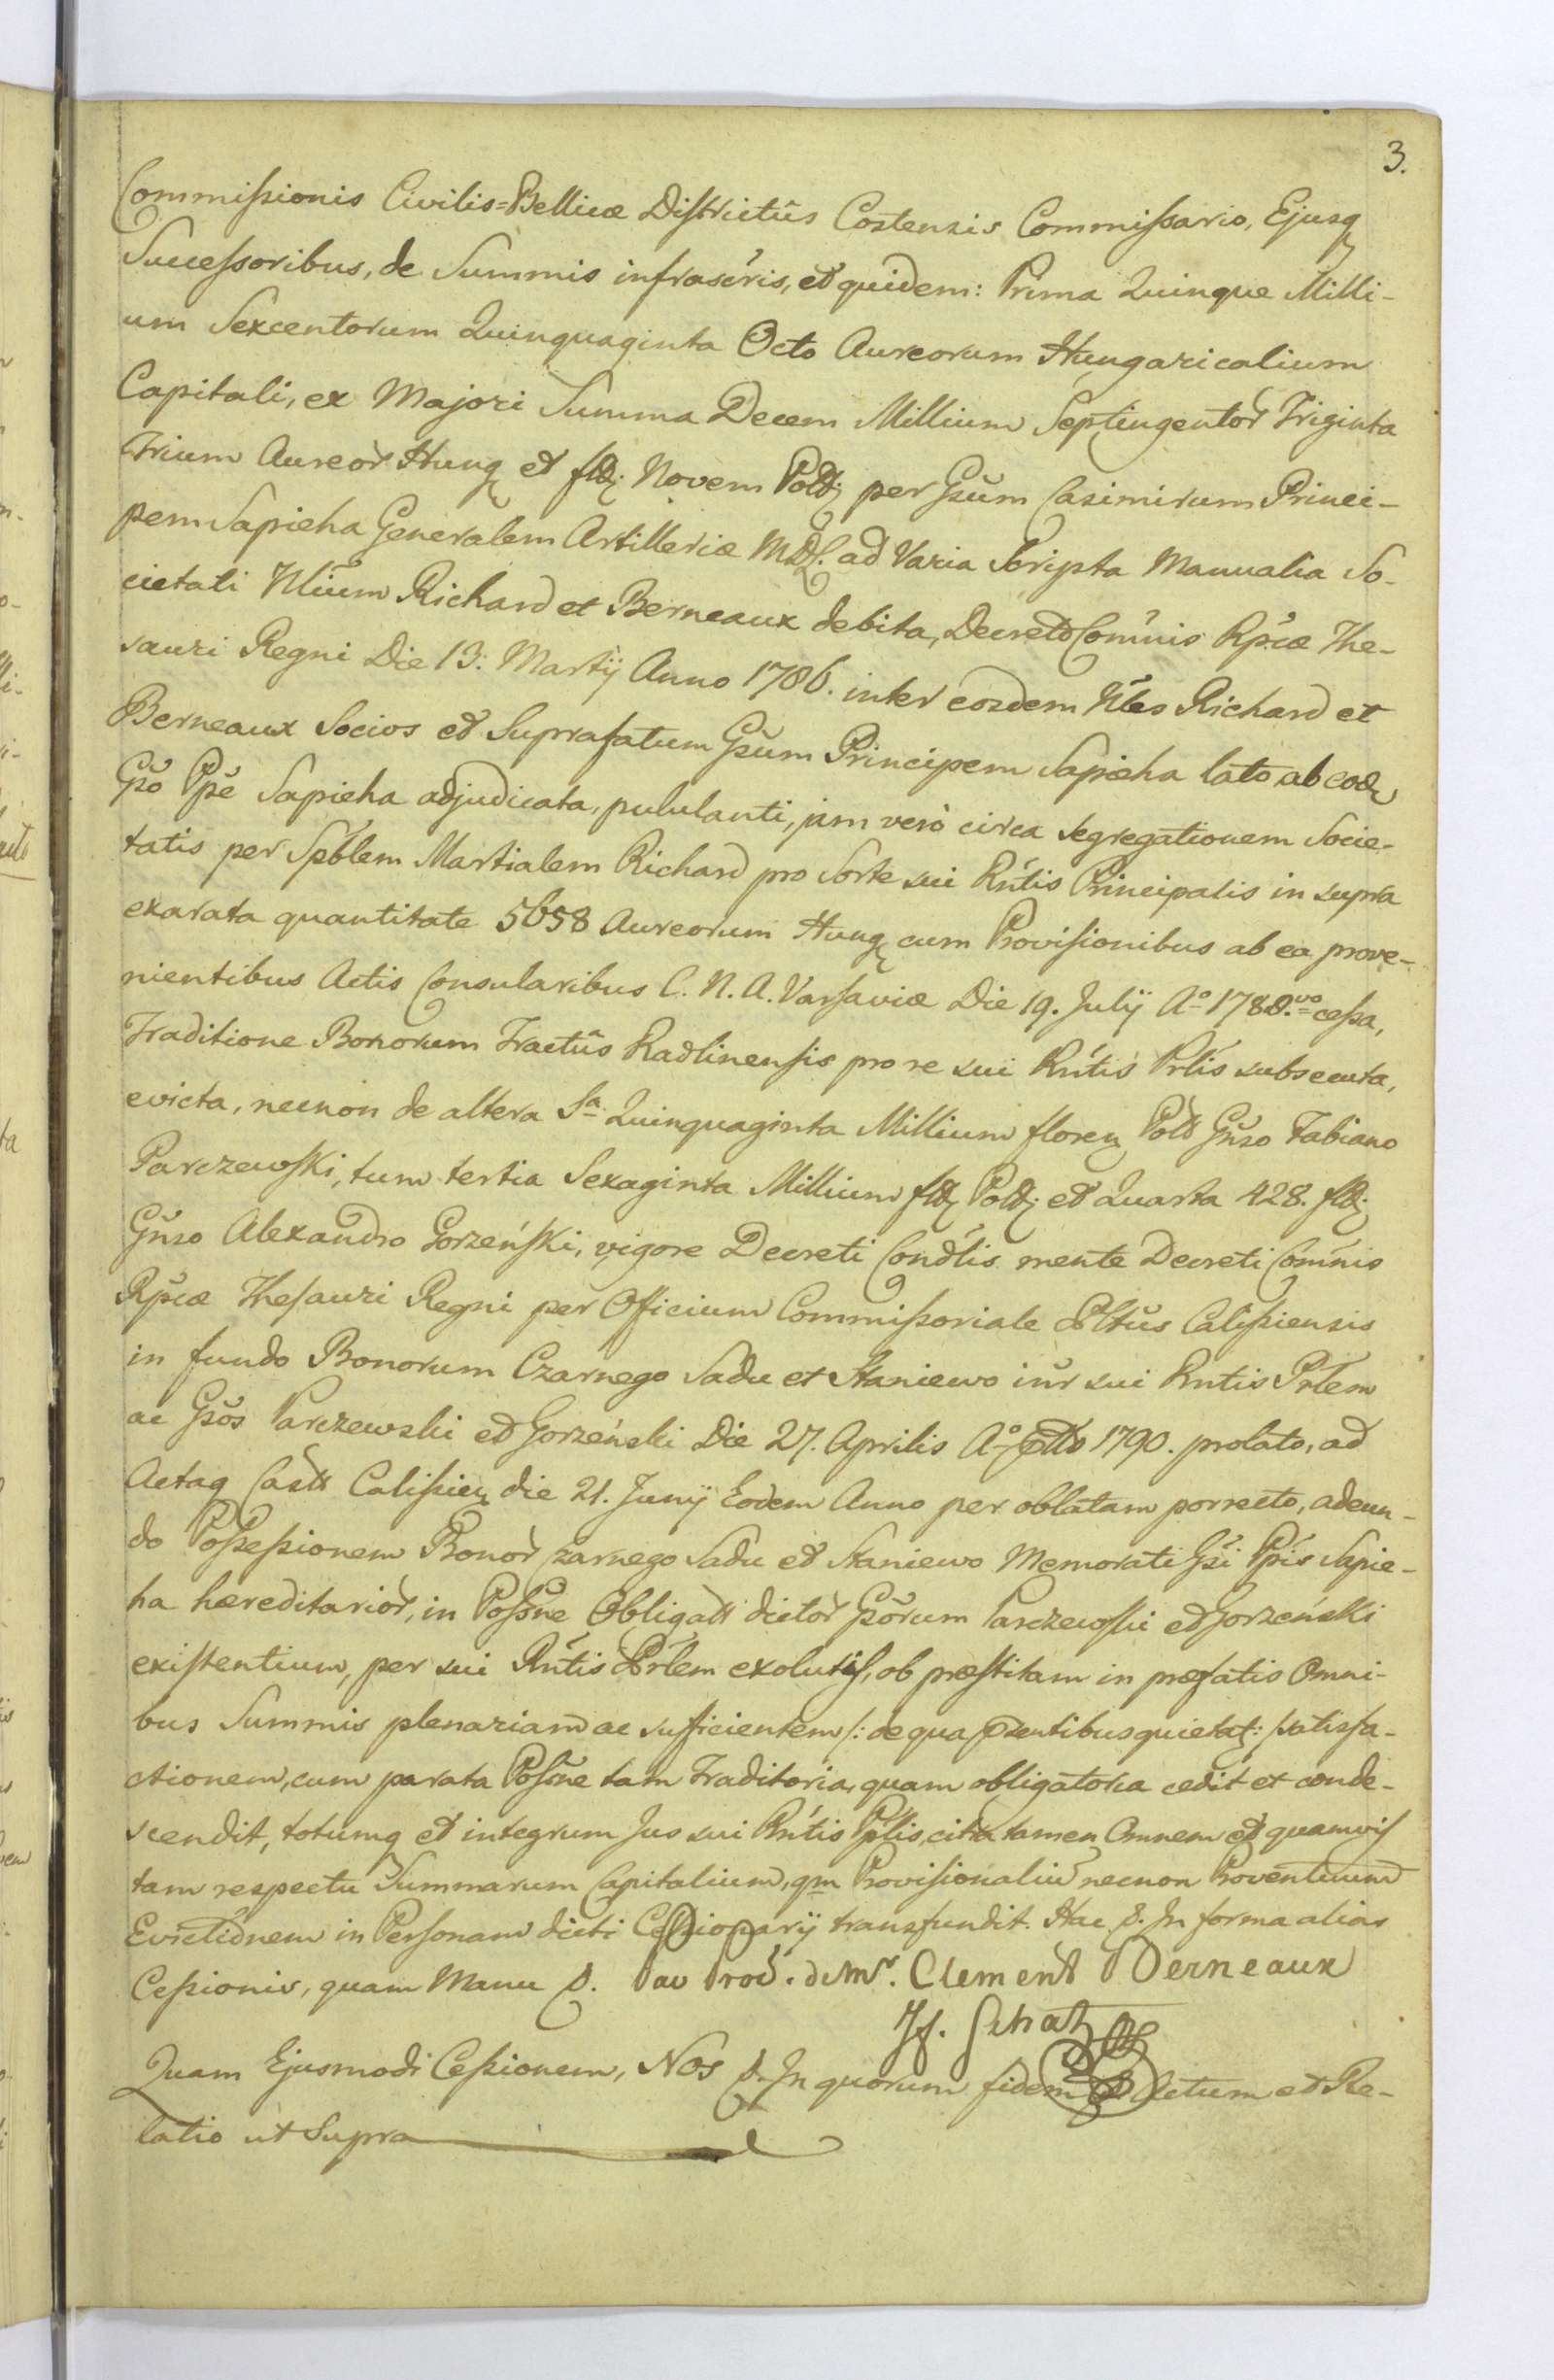 3.
Commissionis Civilis=Bellicæ Districtûs Costensis Commissario, Ejusq
Successoribus, de Summis infrascris, et quidem: Prima Quinque Milli-
um Sexcentorum Quinquaginta Octo Aureorum Hungaricalium
Capitali, ex Majori Summa Decem Millium Septingentor Triginta
Trium Aureor Hung et fl. Novem Pol. per Gsum Casimirum Princi-
pem Sapieha Generalem Artilleriæ MDL. ad Varia Scripta Manualia So-
cietati Nlium Richard et Berneaux debita, Decreto Comnis Rpcæ The-
sauri Regni Die 13. Martij Anno 1786. inter eosdem Nles Richard et
Berneaux Socios et Suprafatum Gsum Principem Sapieha lato ab eod
Gso Ppe Sapieha adjudicata, pululanti, jam verò circa segregationem Socie-
tatis per Spblem Martialem Richard pro Sorte sui Rntis Principalis in supra
exarata quantitate 5658 Aureorum Hung cum Provisionibus ab ea prove-
nientibus Actis Consularibus C. N. A. Varsaviæ Die 19. Julij Aº 1788.vo cessa,
Traditione Bonorum Tractûs Radlinensis pro re sui Rntis Prlis subsecuta,
evicta, necnon de altera Sa Quinquaginta Millium floren Pol Gnso Fabiano
Parczewski, tum tertia Sexaginta Millium fl Pol et Quarta 428. fl
Gnso Alexandro Gorzeński, vigore Decreti Condlis mente Decreti Comnis
Rpcæ Thesauri Regni per Officium Commissoriale Pltus Calissiensis
in fundo Bonorum Czarnego Sadu et Staniewo intr sui Rntis Prlem
ac Gsos Parczewski et Gorzeński Die 27. Aprilis Aº 1790. prolato, ad
Actaq Castr Calissien die 21. Junij Eodem Anno per oblatam porrecto, adeun-
do Possessionem Bonor Czarnego Sadu et Staniewo Memorati Gsi Ppis Sapie-
ha hæreditarior, in Possne Obligat dictor Gsorum Parczewski et Gorzeński
existentium, per sui Rntis Prlem exolutis, ob præstitam in præfatis Omni-
bus Summis plenariam ac sufficientem /: de qua pæsentibus quietat :/ satisfa-
ctionem, cum parata Possne tam Traditoria, quam obligatoria cedit et conde-
scendit, totumq et integrum Jus sui Rntis Pplis, citra tamen Omnem et quamvis
tam respectu Summarum Capitalium, qm Provisionaliu necnon Proventuum
Evictionem in Personam dicti Cessionarij transfundit. Hac &. In forma alias
Cessionis, quam Manu &. Par Proc. de Mr. Clement Berneaux
Quam Ejusmodi Cessionem, Nos &. In quorum fidem & Actum et Re-
latio ut Supra